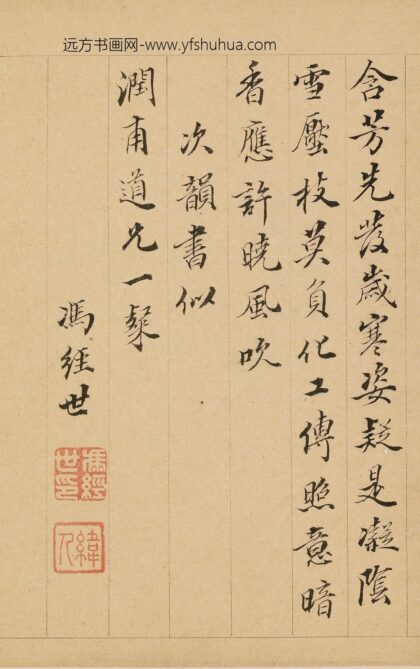 远方书画网-www.yfshuhua.com
含芳先發歲寒姿疑是凝陰
雪壓枝莫負化工傳照意暗
香應許曉風吹
次韻書似
潤甫道兄一粲
馮經世
馮經世印
緯人